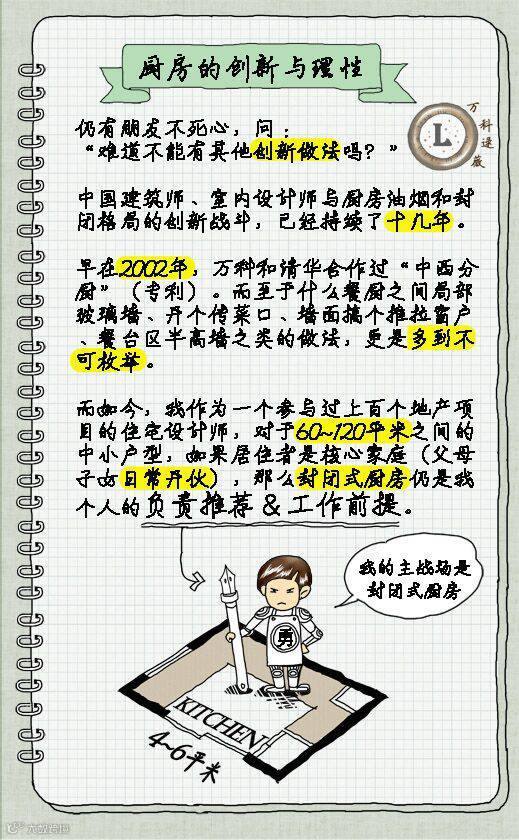 厨房的创新与理性
万科逯薇
L
仍有朋友不死心，问：
“难道不能有其他创新做法吗？”
中国建筑师、室内设计师与厨房油烟和封
闭格局的创新战斗，已经持续了十几年。
早在2002年，万科和清华合作过“中西分
厨”（专利）。而至于什么餐厨之间局部
玻璃墙、开个传菜口、墙面搞个推拉窗户
、餐台区半高墙之类的做法，更是多到不
可枚举。
而如今，我作为一个参与过上百个地产项
目的住宅设计师，对于60~120平米之间的
中小户型，如果居住者是核心家庭（父母
子女日常开伙），那么封闭式厨房仍是我
个人的负责推荐＆工作前提。
我的主战场是
封闭式厨房
勇
KITCHEN
4~6平米